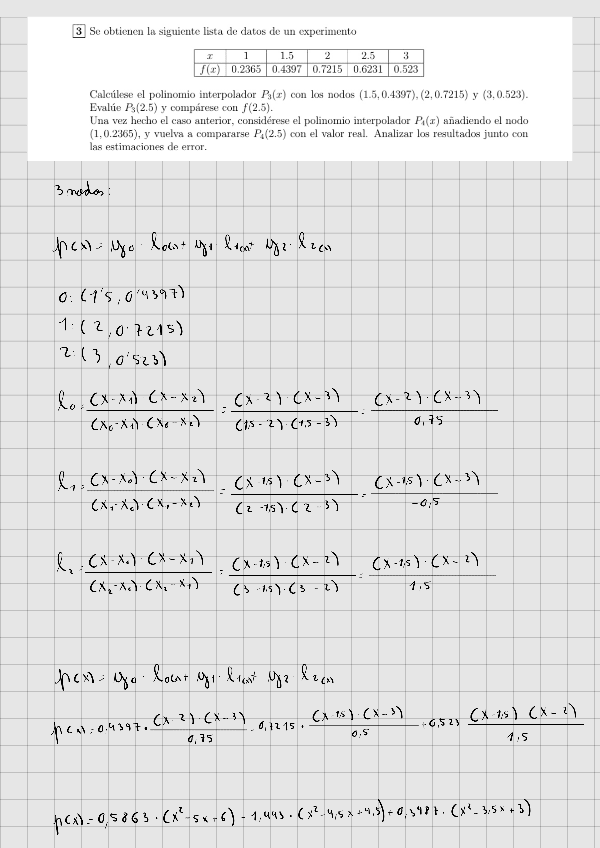 3 Se obtienen la siguiente lista de datos de un experimento
x 1 1.5 2 2.5 3
f(x) 0.2365 0.4397 0.7215 0.6231 0.523
Calcúlese el polinomio interpolador P₃(x) con los nodos (1.5, 0.4397), (2, 0.7215) y (3, 0.523).
Evalúe P₃(2.5) y compárese con f(2.5).
Una vez hecho el caso anterior, considérese el polinomio interpolador P₄(x) añadiendo el nodo
(1, 0.2365), y vuelva a compararse P₄(2.5) con el valor real. Analizar los resultados junto con
las estimaciones de error.
3 nodos:
p(x) = y₀ · l₀(x) + y₁ · l₁(x) + y₂ · l₂(x)
0: (1'5, 0'4397)
1: (2, 0'7215)
2: (3, 0'523)
l₀ = (x-x₁)·(x-x₂) / (x₀-x₁)·(x₀-x₂) = (x-2)·(x-3) / (1,5-2)·(1,5-3) = (x-2)·(x-3) / 0,75
l₁ = (x-x₀)·(x-x₂) / (x₁-x₀)·(x₁-x₂) = (x-1,5)·(x-3) / (2-1,5)·(2-3) = (x-1,5)·(x-3) / -0,5
l₂ = (x-x₀)·(x-x₁) / (x₂-x₀)·(x₂-x₁) = (x-1,5)·(x-2) / (3-1,5)·(3-2) = (x-1,5)·(x-2) / 1,5
p(x) = y₀ · l₀(x) + y₁ · l₁(x) + y₂ l₂(x)
p(x) = 0.4397 · (x-2)·(x-3) / 0,75 - 0,7215 · (x-1,5)·(x-3) / 0,5 + 0,523 (x-1,5)·(x-2) / 1,5
p(x) = 0,5863 · (x²-5x+6) - 1,443 · (x²-4,5x+4,5) + 0,3487 · (x²-3,5x+3)